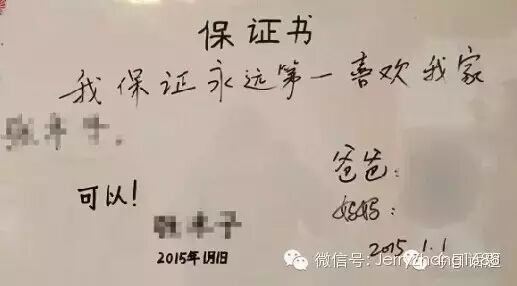 保证书
我保证永远第一喜欢我家
可以！
2015年1月1日
爸爸：
妈妈：
2015.1.1
微信号：